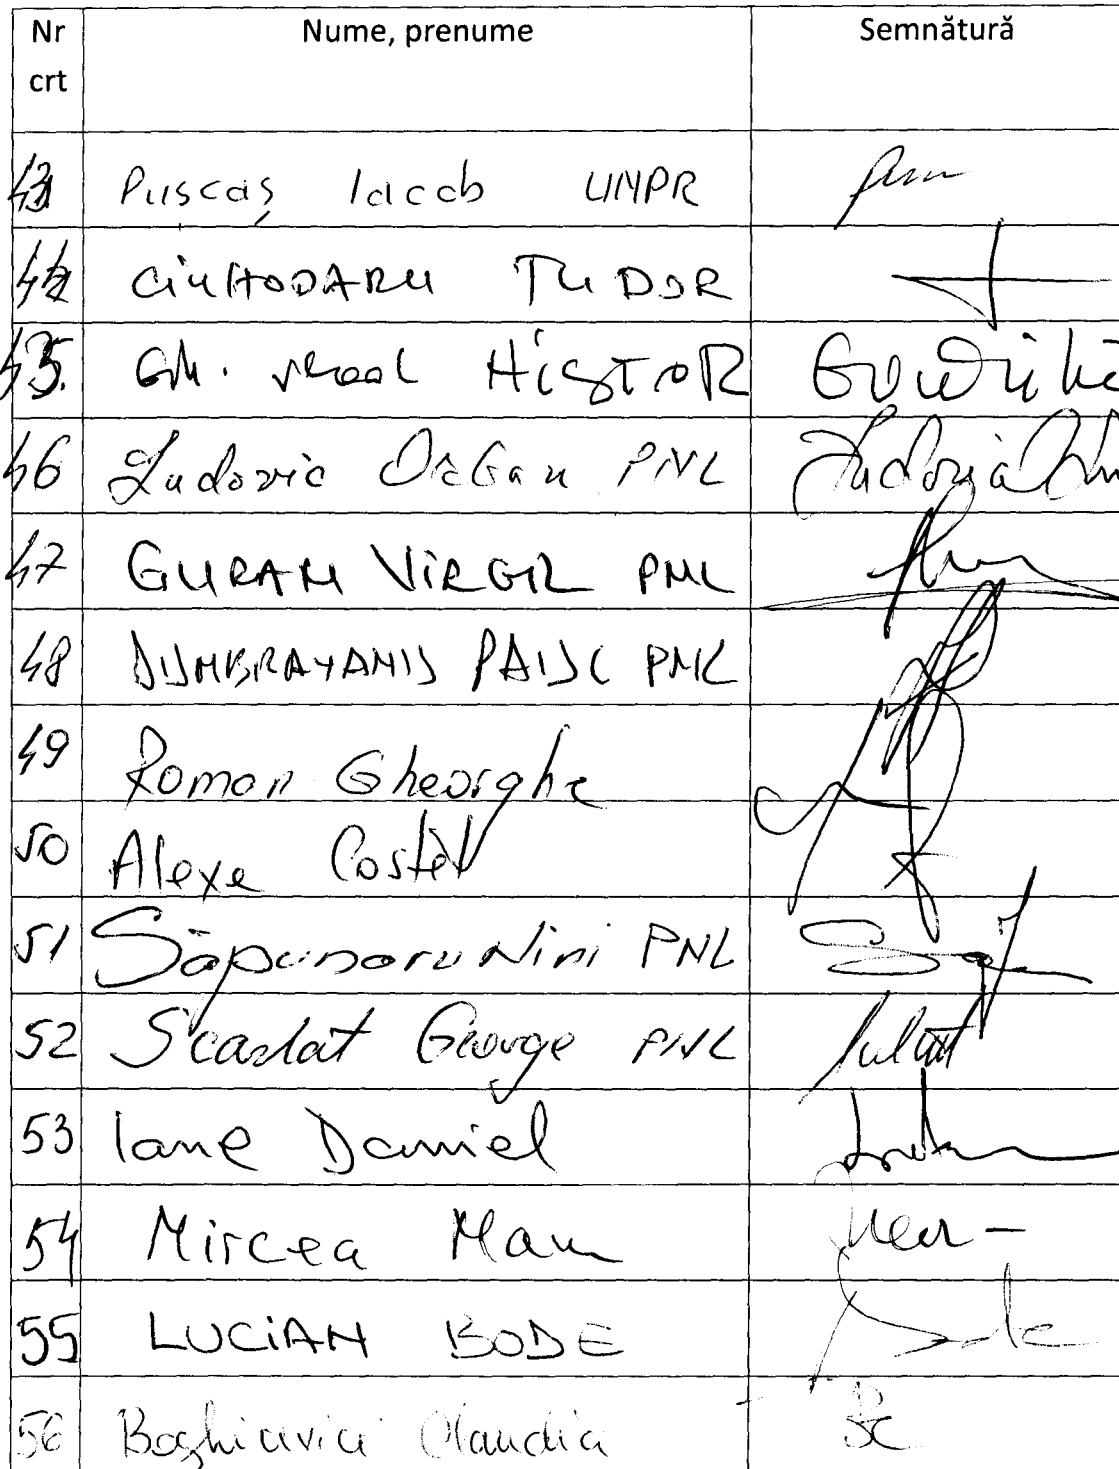 Nr crt Nume, prenume Semnătură
43 Pușcaș Iacob UNPR
44 CIUHODARU TUDOR
45. GH. NISTOR
46 Ludovic Orban PNL
47 GURAN VIRGIL PNL
48 DUMBRAVANU PAUL PNL
49 Roman Gheorghe
50 Alexe Costel
51 Săpunaru Nini PNL
52 Scarlat George PNL
53 Iane Daniel
54 Mircea Man
55 LUCIAN BODE
56 Boghicivici Claudia